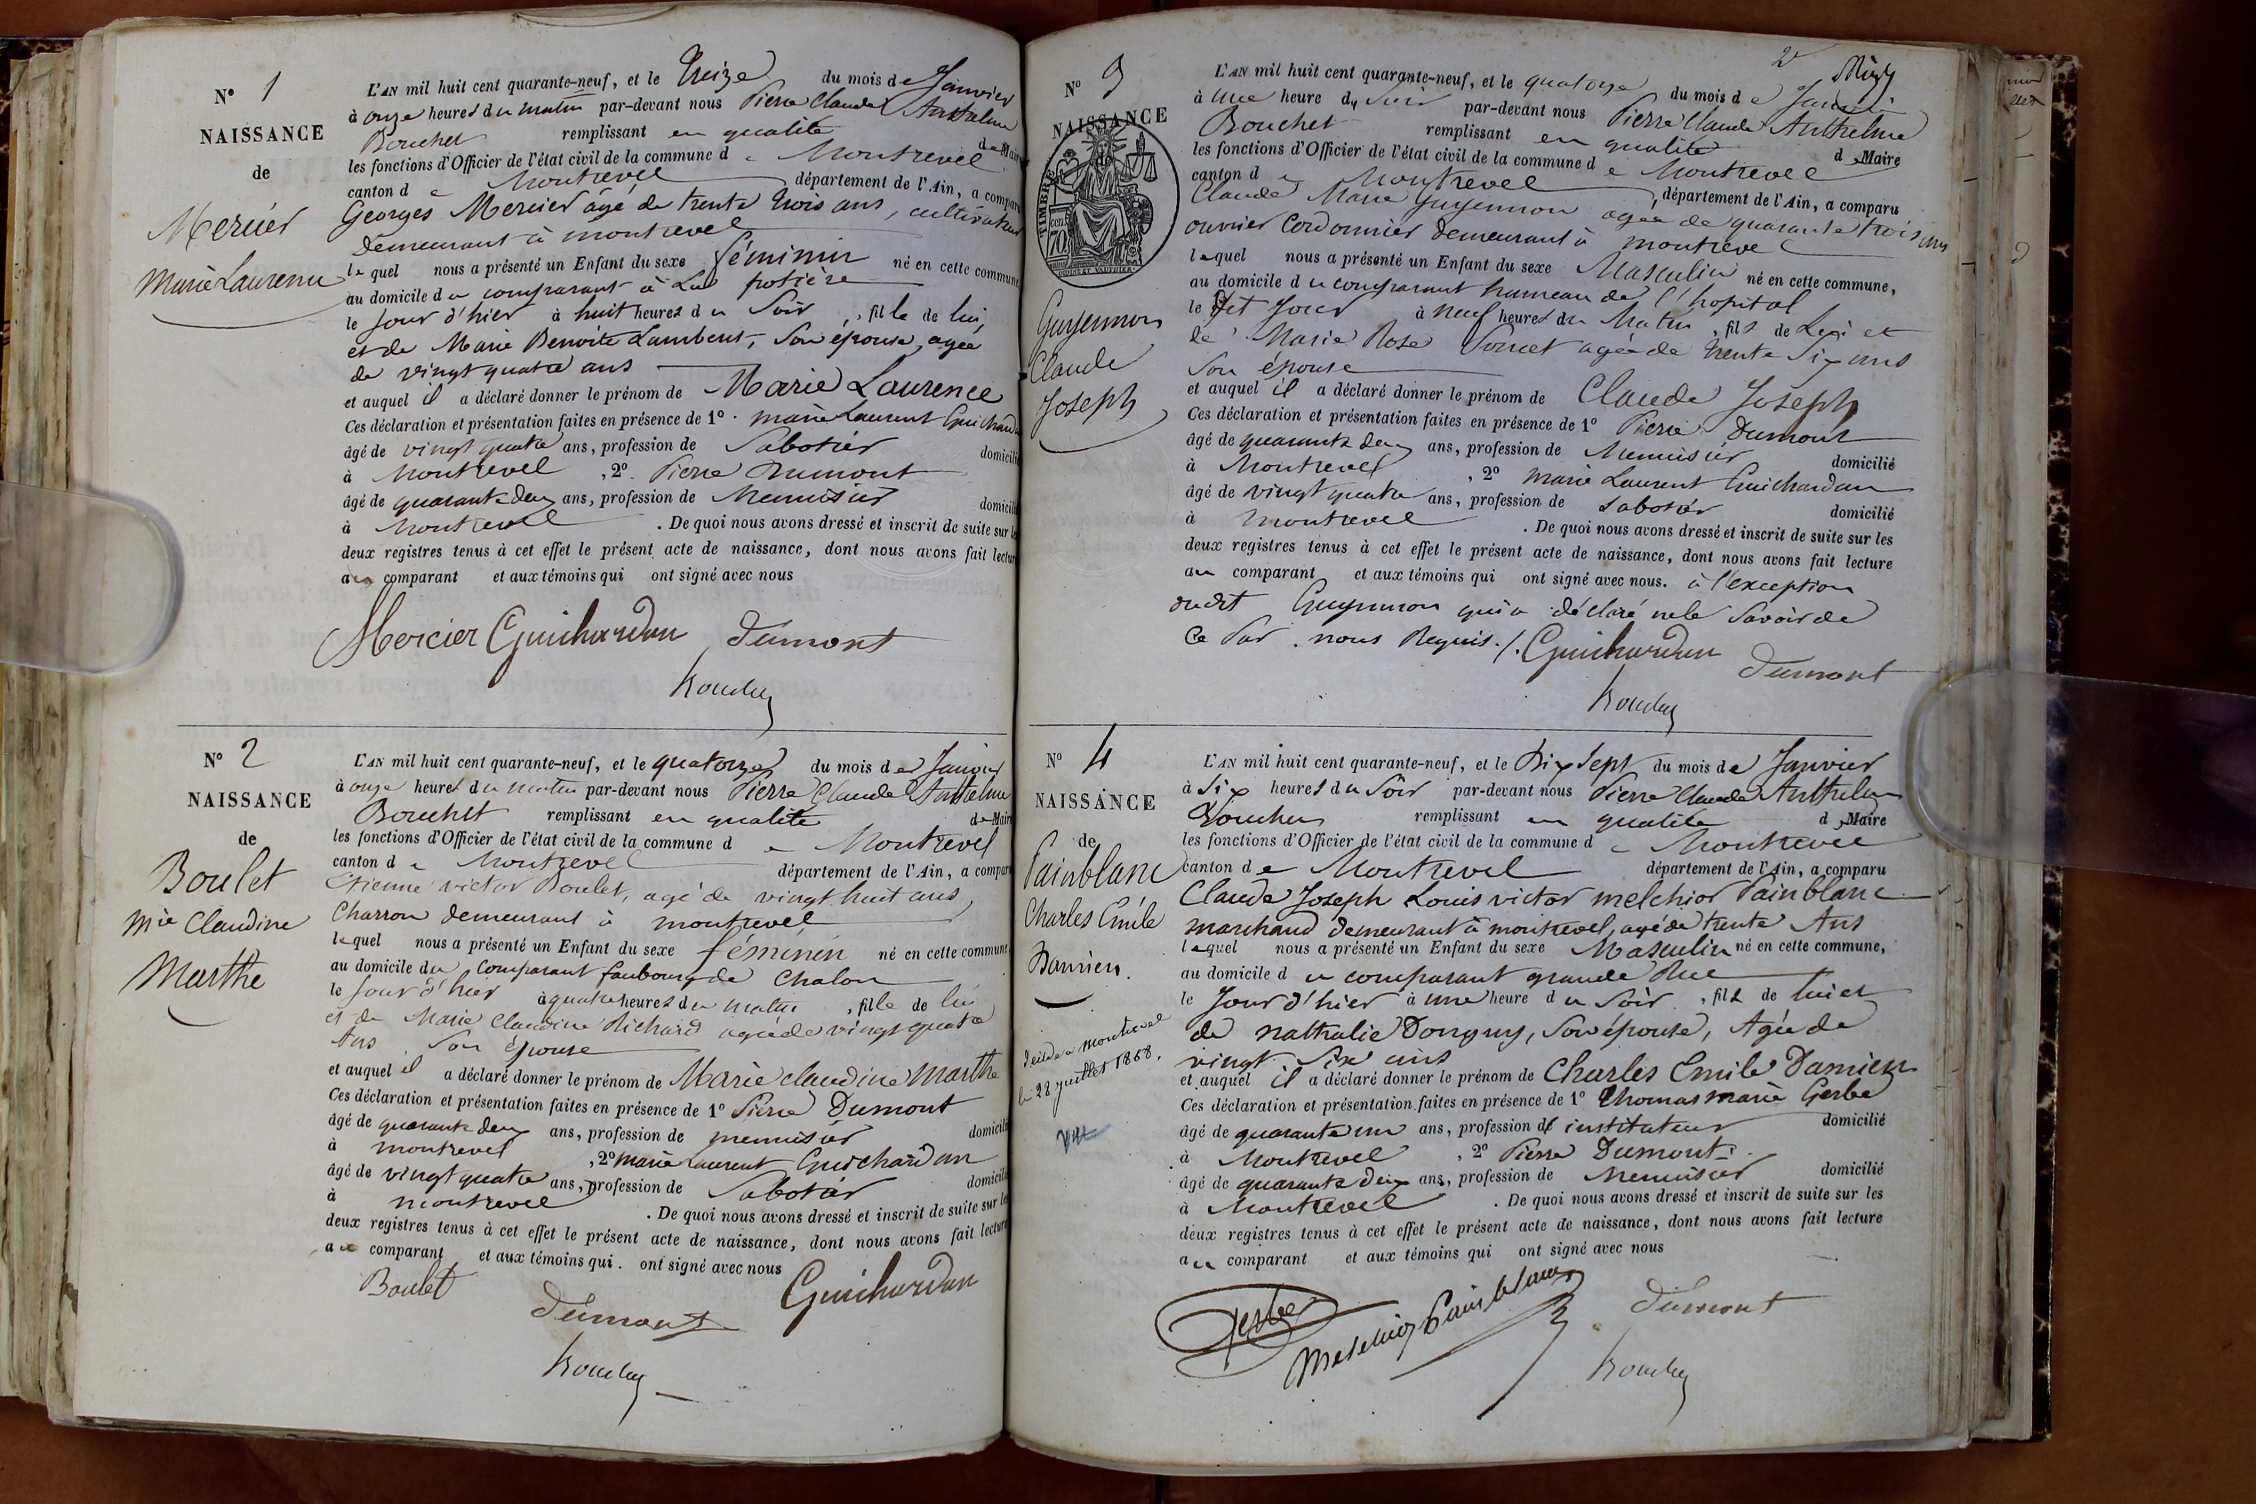 N° 1
NAISSANCE
de
Mercier
Marie Laurence
L'AN mil huit cent quarante-neuf, et le treize du mois de Janvier
à onze heures du matin par-devant nous Pierre Claude Anthelme
Bouchet remplissant en qualité de Maire
les fonctions d'Officier de l'état civil de la commune de Montrevel
canton de Montrevel département de l'Ain, a comparu
Georges Mercier âgé de trente trois ans, cultivateur
demeurant à montrevel
lequel nous a présenté un Enfant du sexe féminin né en cette commune
au domicile du comparant à La potière
le jour d'hier à huit heures du Soir, fille de lui
et de Marie Benoite Lambert, Son épouse, agée
de vingt quatre ans
et auquel il a déclaré donner le prénom de Marie Laurence
Ces déclaration et présentation faites en présence de 1° marie Laurent Guichardan
âgé de vingt quatre ans, profession de Sabotier domicilié
à Montrevel, 2° Pierre Dumont
âgé de quarante deux ans, profession de Menuisier domicilié
à Montrevel. De quoi nous avons dressé et inscrit de suite sur les
deux registres tenus à cet effet le présent acte de naissance, dont nous avons fait lecture
au comparant et aux témoins qui ont signé avec nous
Mercier Guichardan Dumont
Bouchet
N° 2
NAISSANCE
de
Boulet
Mie Claudine
Marthe
L'AN mil huit cent quarante-neuf, et le quatorze du mois de Janvier
à onze heures du matin par-devant nous Pierre Claude Anthelme
Bouchet remplissant en qualité de Maire
les fonctions d'Officier de l'état civil de la commune de Montrevel
canton de Montrevel département de l'Ain, a comparu
Etienne victor Boulet, agé de vingt huit ans,
Charron demeurant à montrevel
lequel nous a présenté un Enfant du sexe féminin né en cette commune
au domicile du Comparant faubourg de Chalon
le Jour d'hier à quatre heures du matin, fille de lui
et de Marie Claudine Richard agée de vingt quatre
Ans Son épouse
et auquel il a déclaré donner le prénom de Marie claudine Marthe
Ces déclaration et présentation faites en présence de 1° Pierre Dumont
âgé de quarante deux ans, profession de menuisier domicilié
à montrevel, 2° marie Laurent Guichardan
âgé de vingt quatre ans, profession de Sabotier domicilié
à montrevel. De quoi nous avons dressé et inscrit de suite sur les
deux registres tenus à cet effet le présent acte de naissance, dont nous avons fait lecture
au comparant et aux témoins qui. ont signé avec nous
Boulet Dumont Guichardan
Bouchet
2
N° 3
NAISSANCE
de
TIMBRE
70
Guyennon
Claude
Joseph
L'AN mil huit cent quarante-neuf, et le quatorze du mois de Janvier
à une heure du Soir par-devant nous Pierre Claude Anthelme
Bouchet remplissant en qualité de Maire
les fonctions d'Officier de l'état civil de la commune de Montrevel
canton de Montrevel, département de l'Ain, a comparu
Claude Marie Guyennon agée de quarante trois ans
ouvrier Cordonnier demeurant à montrevel
lequel nous a présenté un Enfant du sexe Masculin né en cette commune,
au domicile du comparant hameau de l'hopital
le dit Jour à neuf heures du Matin, fils de Lui et
de Marie Rose agée de trente Six ans
Son épouse
et auquel il a déclaré donner le prénom de Claude Joseph
Ces déclaration et présentation faites en présence de 1° Pierre Dumont
âgé de quarante deux ans, profession de Menuisier domicilié
à Montrevel, 2° marie Laurent Guichardan
âgé de vingt quatre ans, profession de Sabotier domicilié
à montrevel. De quoi nous avons dressé et inscrit de suite sur les
deux registres tenus à cet effet le présent acte de naissance, dont nous avons fait lecture
au comparant et aux témoins qui ont signé avec nous. à l'exception
dudit Guyennon qui a déclaré ne le Savoir de
Ce Par nous Requis./. Guichardan Dumont
Bouchet
N° 4
NAISSANCE
de
Painblanc
Charles Emile
Damien.
décédé à Montrevel
le 28 juillet 1868.
L'AN mil huit cent quarante-neuf, et le Dix Sept du mois de Janvier
à Six heures du Soir par-devant nous Pierre Claude Anthelme
Bouchet remplissant en qualité de Maire
les fonctions d'Officier de l'état civil de la commune de Montrevel
canton de Montrevel département de l'Ain, a comparu
Claude Joseph Louis victor melchior Painblanc
marchand demeurant à montrevel, agé de trente Ans
lequel nous a présenté un Enfant du sexe Masculin né en cette commune,
au domicile du comparant grande Rue
le Jour d'hier à une heure du Soir, fils de lui et
de nathalie Donguy, Son épouse, Agée de
vingt Six ans
et auquel il a déclaré donner le prénom de Charles Emile Damien
Ces déclaration et présentation faites en présence de 1° Thomas marie Gerbe
âgé de quarante un ans, profession d'instituteur domicilié
à Montrevel, 2° Pierre Dumont
âgé de quarante Deux ans, profession de Menuisier domicilié
à Montrevel. De quoi nous avons dressé et inscrit de suite sur les
deux registres tenus à cet effet le présent acte de naissance, dont nous avons fait lecture
au comparant et aux témoins qui ont signé avec nous
Gerbe Melchior Painblanc Dumont
Bouchet